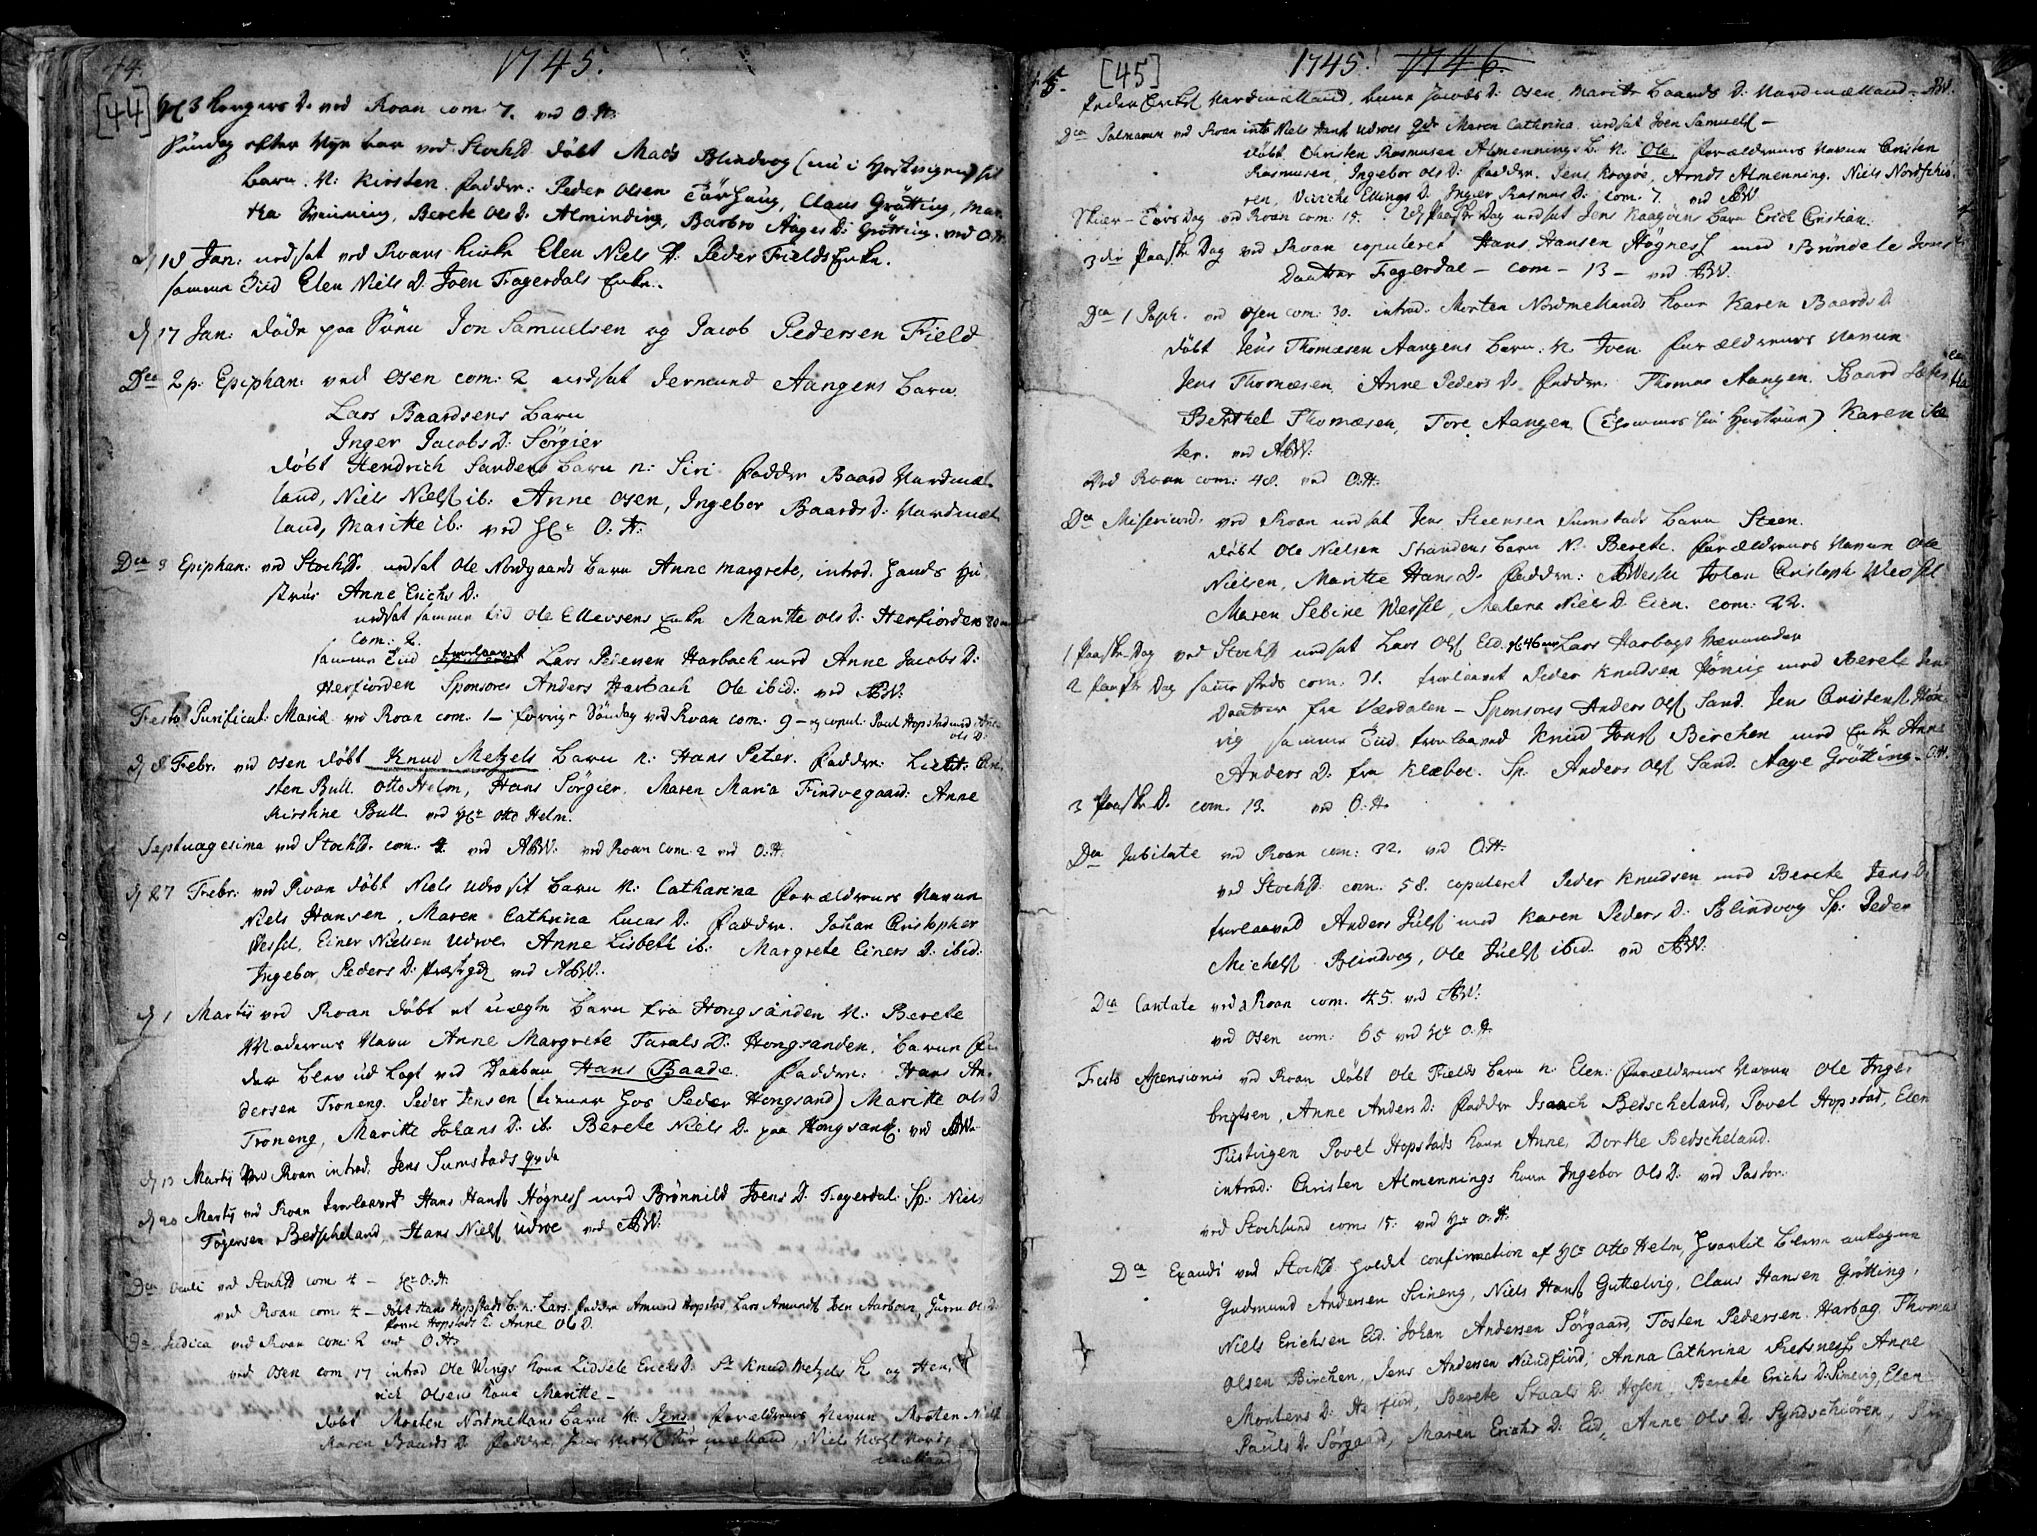 44.
1745.
[44] Hl 3 Kongers D. ved Roan com 7. ved O.H.
Søndag efter Nye Aar ved Stochs. døbt Mads Blindvog (nu i Hestvigen) sit
barn. N: Kirsten. fadder: Peder Olsen Tårhaug, Claus Grøtting, Mar-
tha Svenning, Berete Ols D. Alminding, Barbro Aages D: Grøtting. ved O.H.
d 10 Jan: indsat ved Roans kirke Elen Niels D: Peder Fields Enke.
samme Tiid Elen Niels D. Joen Fagerdals Enke.
d 17 Jan: døde paa Søen Jon Samuelsen og Jacob Pedersen Field
Dca 2 p. Epiphan: ved Osen com: 2 indsat Jermund Aangens barn
Lars Baardsens barn
Inger Jacobs D. Sørgier
døbt Hendrich Sanders barn n: Siri fadder Baard Nordmæl-
land, Niels Niels: ib: Anne Osen, Ingebor Baards D: Nordmæl-
land, Maritte ib: ved Hr O.H.
Dca 3 Epiphan: ved Stochs. indsat Ole Nordgaards barn Anne Margrete, introd. hands Hu-
strue Anne Erichs D:
indsat samme tid Ole Ellevsens Enke Maritte Ols D: Herfiorden 80
com: 2.
samme Tiid trolovet Lars Pedersen Harbach med Anne Jacobs D:
Herfiorden Sponsores Anders Harbach Ole ibid: ved ABW.
Festo Purificat: Mariæ ved Roan com. 1 – forrige Søndag ved Roan com: 9 – og copul: Paul Hopstad med Anne
Ols D.
d 8 Febr. ved Osen døbt Knud Metzels barn n: Hans Peter. fadder: Lieut: Chri-
sten Bull. Otto Helm, Hans Sørgier, Maren Maria Findvegaard: Anne
Kirstine Bull ved Hr Otto Helm.
Septuagesima ved Stochs. com. 4. ved ABW: ved Roan com: 2 ved O.H.
d 27 Febr: ved Roan døbt Niels Udro sit barn N: Catharina forældrenes Navne
Niels Hansen, Maren Cathrina Lucas D: fadder. Johan Christopher
Wessel, Einer Nielsen Udroe. Anne Lisbeth ib: Margrete Einers D: ibid:
Ingebor Peders D: Præstgd: ved ABW.
d 1 Martij ved Roan døbt et uægte barn fra Hongsanden N: Berete
Moderens Navn Anne Margrete Tarals D: Hongsanden, barne fa-
der blev udlagt ved Daaben Hans Baade. fadder: Hans An-
dersen Troneng. Peder Jensen (tiener hos Peder Hongsand) Maritte Ols D
Troneng, Maritte Johans D: ib. Berete Niels D. paa Hongsand. ved ABW
d 13 Martij ved Roan introd: Jens Sumstads qvde
d 20 Martij ved Roan trolovet Hans Hans: Högness med Brönnild Joens D. Fagerdal: Sp: Niels
Togersen Bedscheland, Hans Niels: Udroe ved ABW:
Dca Oculi ved Stochs com 4 – Hr O.H.
ved Roan com: 4 – døbt Hans Hopstads b. n: Lars. fadder Amund Hopstad, Lars Amunds: Joen Aarboen, Gurru Ols D:
Povel Hopstads K. Anne Ols D.
Dca Judica ved Roan com: 2 ved O.H.
ved Osen com 17 introd Ole Wings kone Zidsele Erichs D. Sr Knud Metzels K og Hen-
rich Olsens kone Maritte –
døbt Morten Nordmellans barn N. Jens. forældrenes Navne Morten Niels:
Maren Baards D fadder, Jens Niels: Nordmælland, Niels Niels: Nord-
mælland
45.
[45]
1745. 1746.
Peder Erichs: Nordmælland, Anne Jacobs D: Osen, Maritte Baards D: Nordmælland – ABW.
Dca Palmarum ved Roan intr. Niels Hans: Udroes qvde Maren Cathrina. indsat Joen Samuels: –
døbt Christen Rasmusen Almennings b. N. Ole. forældrenes Navne Cristen
Rasmusen, Ingebor Ols D: fadder. Jens Kragøe, Arndt Almenning. Niels Nordschio-
ren, Ulriche Ellings D. Inger Rasmus D: com. 7. ved ABW
Skiær-Torsdag ved Roan com: 15. 2den Paaske Dag indsat Jens Kaagøens barn Erich Cristian.
3die Paaske Dag ved Roan copuleret Hans Hansen Högness med Bröndele Jons
Daatter Fagerdal – com – 13 – ved ABW.
Dca 1 Pasch. ved Osen com: 30. introd. Morten Nordmellands kone Karen Baards D.
døbt Jens Thomæsen Aangens barn: N. Joen forældrenes Navne
Jens Thomæsen, Anne Peders D. fadder. Thomas Aangen. Baard Sæter
Berthel Thomæsen, Tore Aangen (Thommes sin Hustrue) Karen Sæ-
ter. ved ABW:
Ved Roan com: 48. ved O.H.
Dca Misericord. ved Roan indsat Jens Steensen Sumstads barn Steen.
døbt Ole Nielsen Strandens barn N. Berete. forældrenes Navne Ole
Nielsen, Maritte Hans D. fadder: ABWessel Johan Cristoph. Wessel
Maren Sebine Wessel, Malena Niels D. Eien. com: 22.
1 Paaske Dag ved Stochs indsat Lars Ols: Eid. 46 Lars Harbags Værmoder
2 Paaske Dag samme steds com: 31. trolovet Peder Knudsen Hönnig med Berete Jens
Daatter fra Værdalen – Sponsores Anders Ols: Sand. Jens Cristens: Høn-
vig samme Tiid trolovet Knud Jons: Birchen med Enke Anne
Anders D. fra Klæboe. Sp. Anders Ols: Sand. Aage Grötting. O.H.
3 Paaske D. com. 13. ved O.H.
Dca Jubilate ved Roan com: 32. ved O.H.
ved Stochs: com. 58. copuleret Peder Knudsen med Berete Jens D.
trolovet Anders Juls: med Karen Peders D: Blindvog Sp: Peder
Michels: Blindvog, Ole Juels: ibid. ved ABW:
Dca Cantate ved Roan com. 45. ved ABW:
ved Osen com: 65 ved Hr O.H.
Festo Ascensionis ved Roan døbt Ole Fields barn n: Elen: forældrenes Navne Ole Inge-
brigtsen, Anne Anders D: fadder Isaach Bedscheland, Povel Hopstad, Elen
Tustvigen Povel Hopstads kone Anne, Dorte Bedscheland.
introd: Christen Almennings kone Ingebor Ols D: ved Pastor.
ved Stochsund com: 15: ved Hr O.H.
Dca Exaudi ved Stochs: holdt confirmation af Hr Otto Helm, hvortil bleve antagne
Gudmund Andersen Sineng, Niels Hans: Guttelvig, Claus Hansen Grötting,
Niels Erichsen Eid. Johan Andersen Sørgaard, Tosten Pedersen Harbag. Thomas
Olsen Birchen, Jens Andersen Nordfiord, Anna Cathrina Refsness, Anne
Mortens D: Herfiord, Berete Staals D. Hofen, Berete Erichs D: Sinevig, Elen
Pauls D. Sørgaard, Maren Erichs D: Eid, Anne Ols D. Syndschiören,